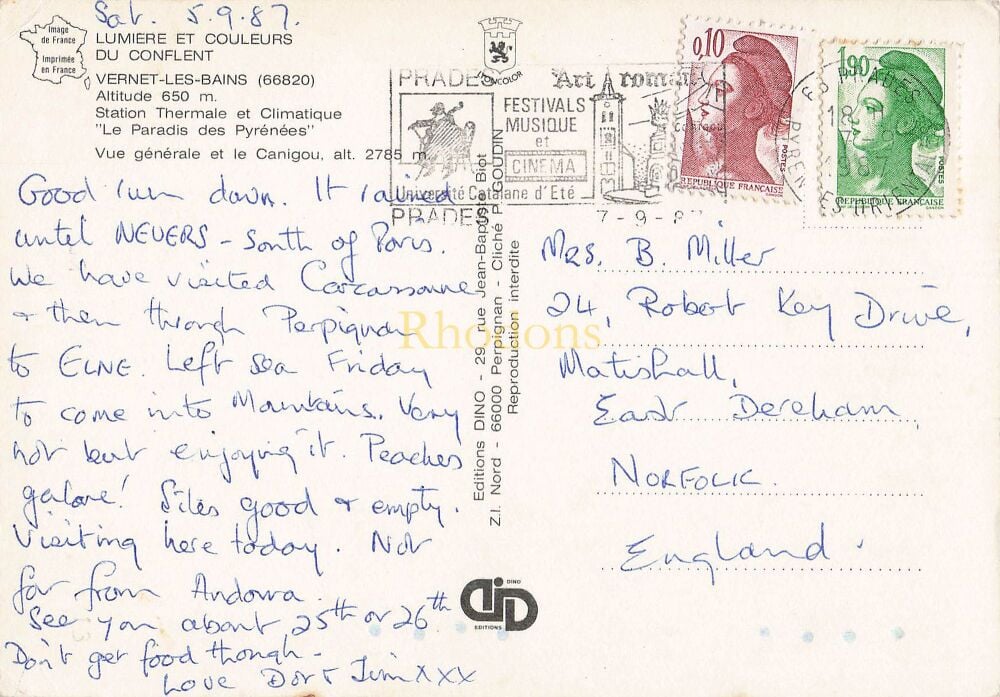 Sat. 5.9.87.
Image
de France
Imprimée
en France
LUMIERE ET COULEURS
DU CONFLENT
VERNET-LES-BAINS (66820)
Altitude 650 m.
Station Thermale et Climatique
"Le Paradis des Pyrénées"
Vue générale et le Canigou, alt. 2785 m.
Good run down. It rained
until NEVERS - South of Paris.
We have visited Carcassonne
& then through Perpignan
to ELNE. Left sea Friday
to come into Mountains. Very
hot but enjoying it. Peaches
galore! Sites good & empty.
Visiting here today. Not
far from Andorra.
See you about 25th or 26th
Don't get food though -
Love Dor & Jim xxx
Editions DINO - 29, rue Jean-Baptiste Biot
Z.I. Nord - 66000 Perpignan - Cliché P. GOUDIN
Reproduction interdite
DINO
EDITIONS
PRADES
FESTIVALS
MUSIQUE
et
CINEMA
Université Catalane d'Eté
PRADES
Art roman
7-9-87
0,10
POSTES
REPUBLIQUE FRANÇAISE
1,90
POSTES
REPUBLIQUE FRANÇAISE
PRADES
18
7-9
1987
Mrs. B. Miller
24, Robert Key Drive,
Matishall,
East Dereham,
NORFOLK.
England.
Rhodons